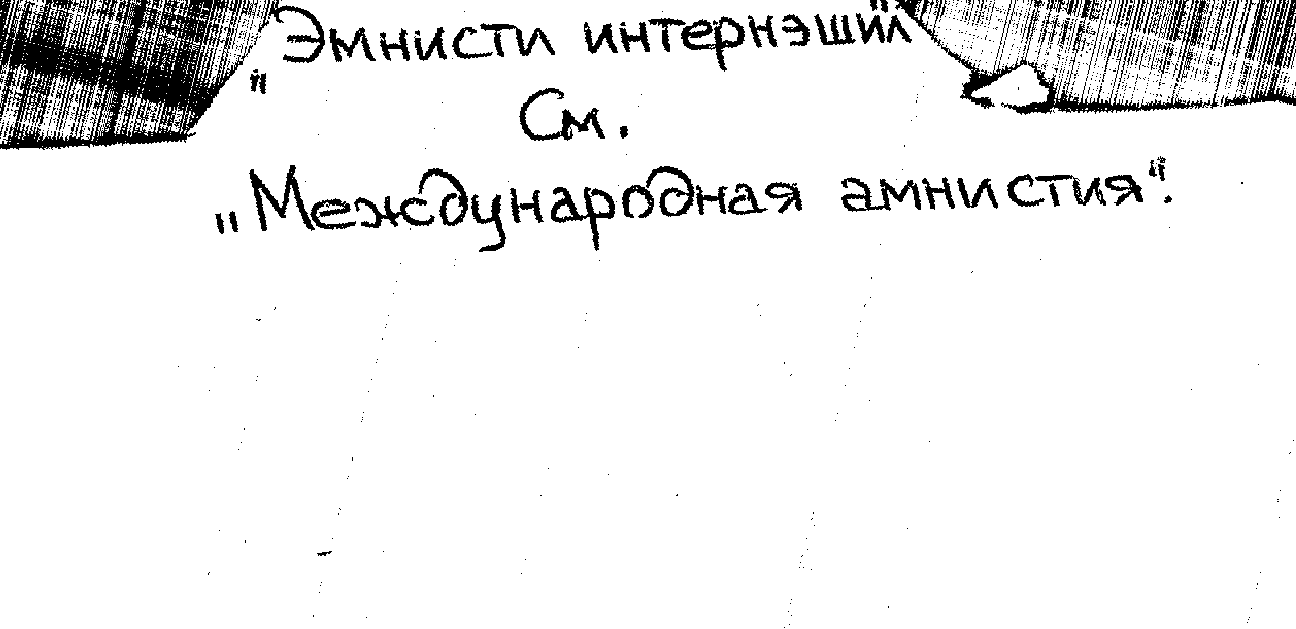 "Эмнисти интернэшил"
См.
"Международная амнистия".